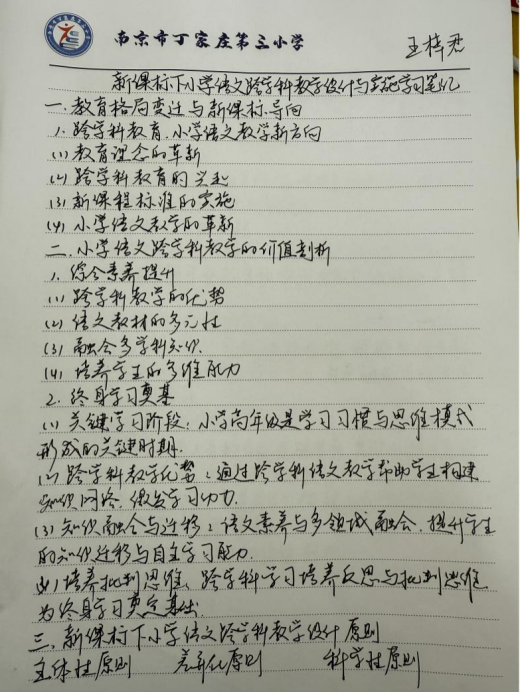 南京市丁家庄第三小学
王梓君
新课标下小学语文跨学科教学设计与实施学习笔记
一、教育格局变迁与新课标导向
1. 跨学科教育:小学语文教学新方向
(1) 教育理念的革新
(2) 跨学科教育的兴起
(3) 新课程标准的实施
(4) 小学语文教学的革新
二、小学语文跨学科教学的价值剖析
1. 综合素养提升
(1) 跨学科教学的优势
(2) 语文教材的多元性
(3) 融合多学科知识.
(4) 培养学生的多维能力
2. 终身学习奠基
(1) 关键学习阶段:小学高年级是学习习惯与思维模式
形成的关键时期.
(2) 跨学科教学优势:通过跨学科语文教学帮助学生构建
知识网络,激发学习动力.
(3) 知识融合与迁移:语文素养与多领域融合,提升学生
的知识迁移与自主学习能力.
(4) 培养批判思维:跨学科学习培养反思与批判思维
为终身学习奠定基础
三、新课标下小学语文跨学科教学设计原则
主体性原则 差异化原则 科学性原则